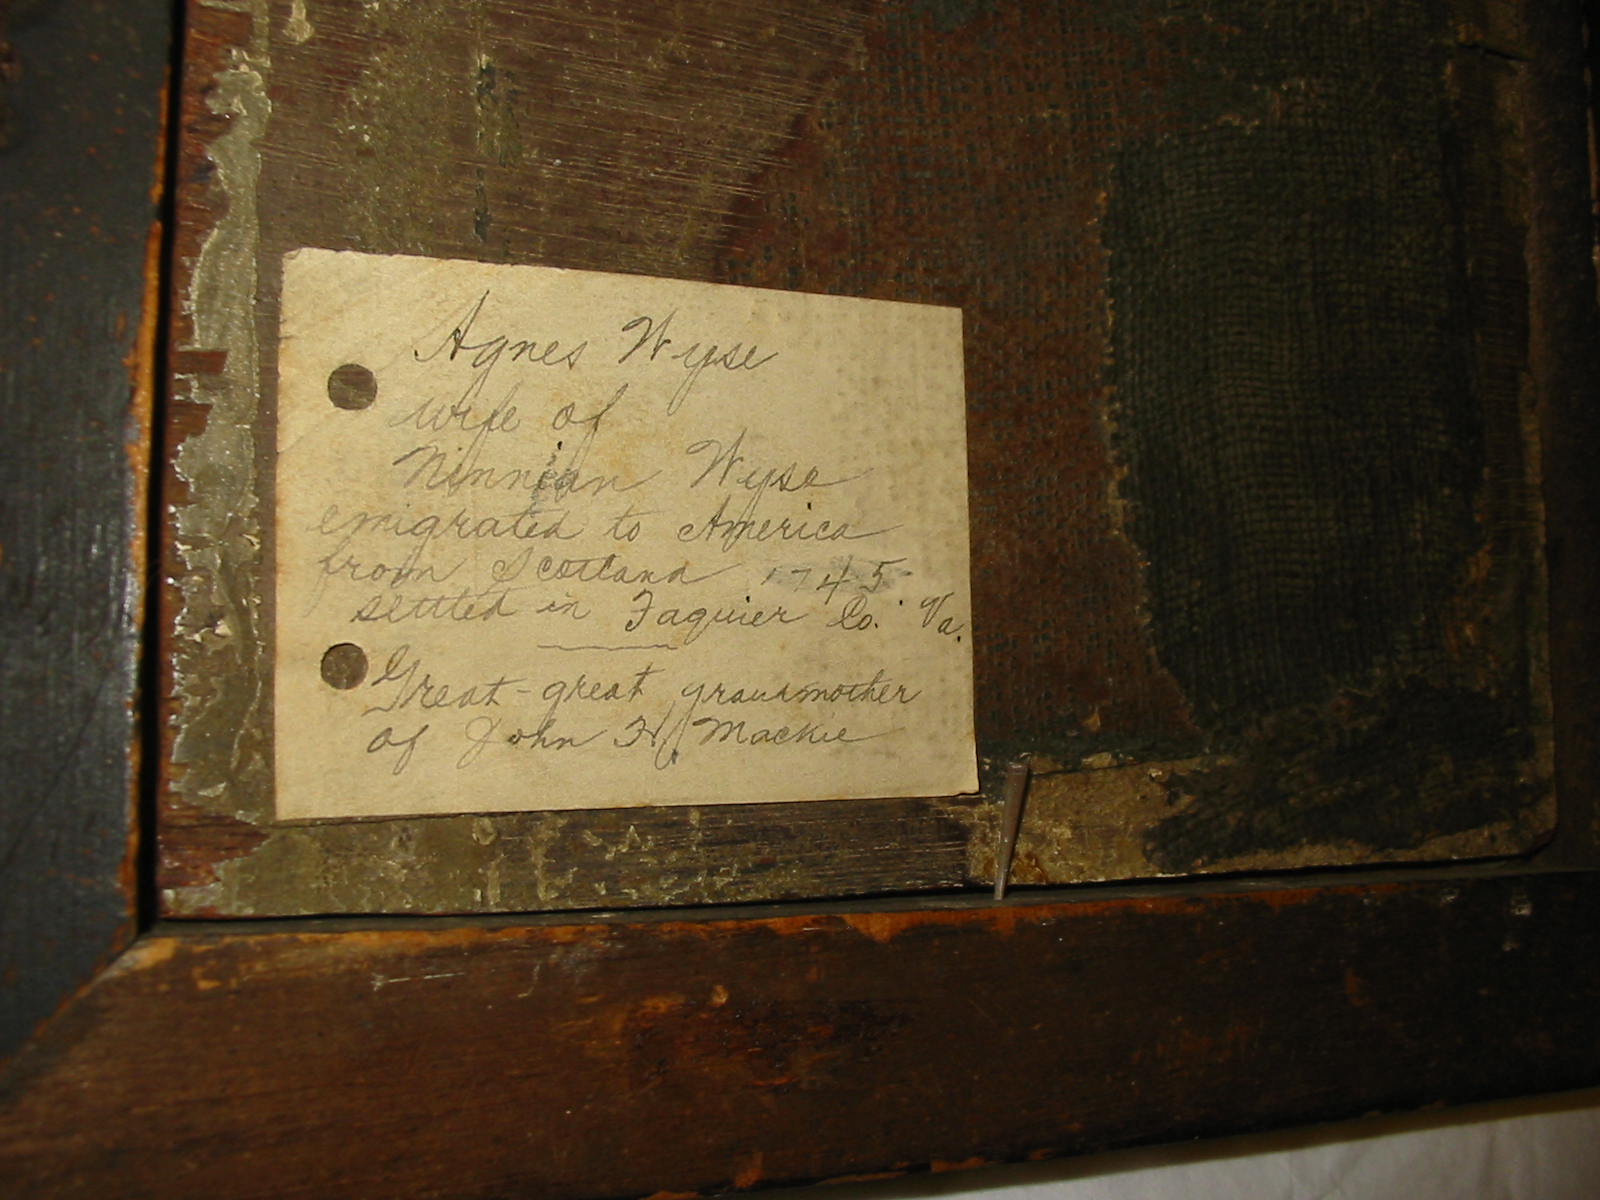 Agnes Wyse
wife of
Ninnian Wyse
emigrated to America
from Scotland 1745
settled in Faquier Co. Va.
Great-great grandmother
of John H. Mackie